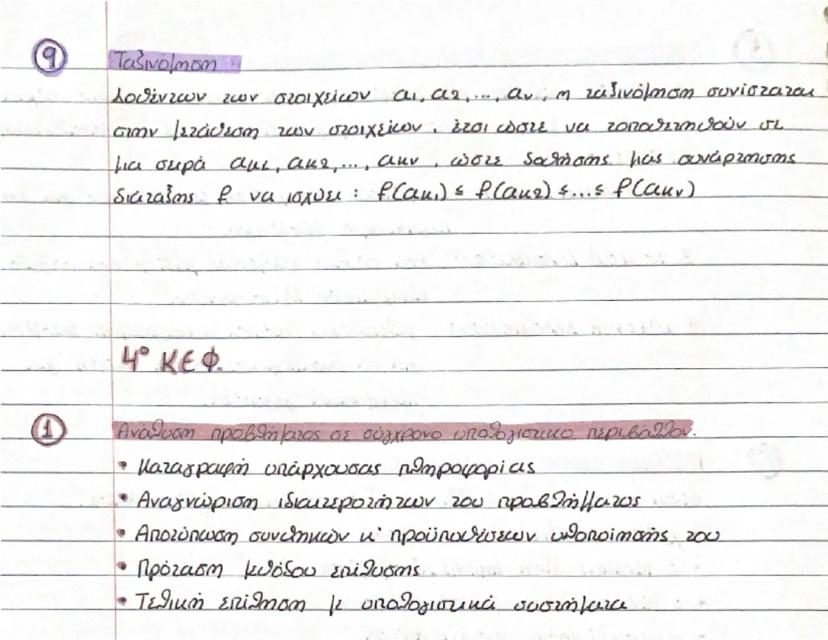 9 Ταξινόμηση:
Δοθέντων των στοιχείων α1, α2, ..., αν, η ταξινόμηση συνίσταται
στην μετάθεση των στοιχείων, έτσι ώστε να τοποθετηθούν σε
μια σειρά ακ1, ακ2, ..., ακν, ώστε δοθήσης μιας συνάρτησης
διάταξης f να ισχύει: f(ακ1) ≤ f(ακ2) ≤...≤ f(ακν)
4ο ΚΕΦ.
1 Ανάλυση προβλήματος σε σύγχρονο υπολογιστικό περιβάλλον.
• Καταγραφή υπάρχουσας πληροφορίας
• Αναγνώριση ιδιαιτεροτήτων του προβλήματος
• Αποτύπωση συνθηκών κ' προϋποθέσεων υλοποίησής του
• Πρόταση μεθόδου επίλυσης
• Τελική επίλυση με υπολογιστικά συστήματα